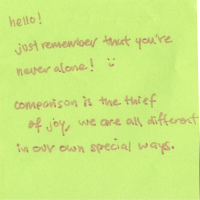 hello!
just remember that you're
never alone! :)
comparison is the thief
of joy, we are all different
in our own special ways.